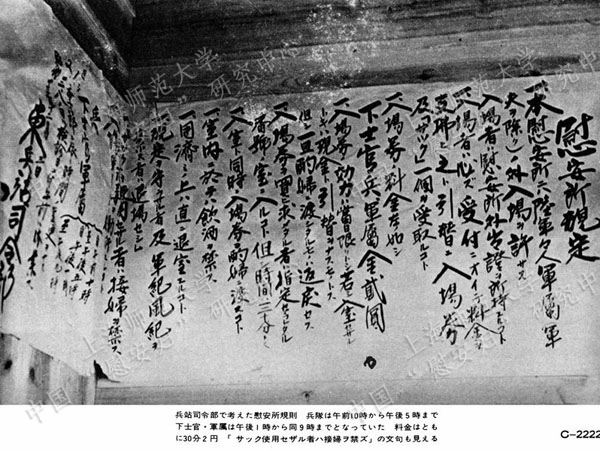 慰安所規定
一、本慰安所ニハ陸軍々人軍属軍
夫ヲ除クノ外入場ヲ許サス
一、入場者ハ慰安所外出證ヲ所持スルコト
一、入場者ハ必ス受付ニオイテ料金ヲ
支拂ヒ之ト引替ニ入場券
及「サック」一個ヲ受取ルコト
一、入場券ノ料金左ノ如シ
下士官、兵、軍屬金貳圓
一、入場券ノ効力ハ當日限トシ若シ入室セサル
トキハ現金ト引替ヲナスモノトス
但シ一旦酌婦ニ渡シタルモノハ返戻セス
一、入場券ヲ買ヒ求メタル者ハ指定セラレタル
番號ノ室ニ入ルコト但シ時間ハ三十分トス
一、入室ト同時ニ入場券ヲ酌婦ニ渡スコト
一、室内ニ於テハ飲酒ヲ禁ス
一、用濟ミノ上ハ直ニ退室スルコト
一、規定ヲ守ラサル者及軍紀風紀ヲ
紊ス者ハ退場セシム
一、サックヲ使用セサル者ハ接婦ヲ禁ス
東兵站司令部
兵站司令部で考えた慰安所規則 兵隊は午前10時から午後5時まで
下士官・軍属は午後1時から同9時までとなっていた 料金はとも
に30分2円 「サック使用セザル者ハ接婦ヲ禁ズ」の文句も見える
C-2222